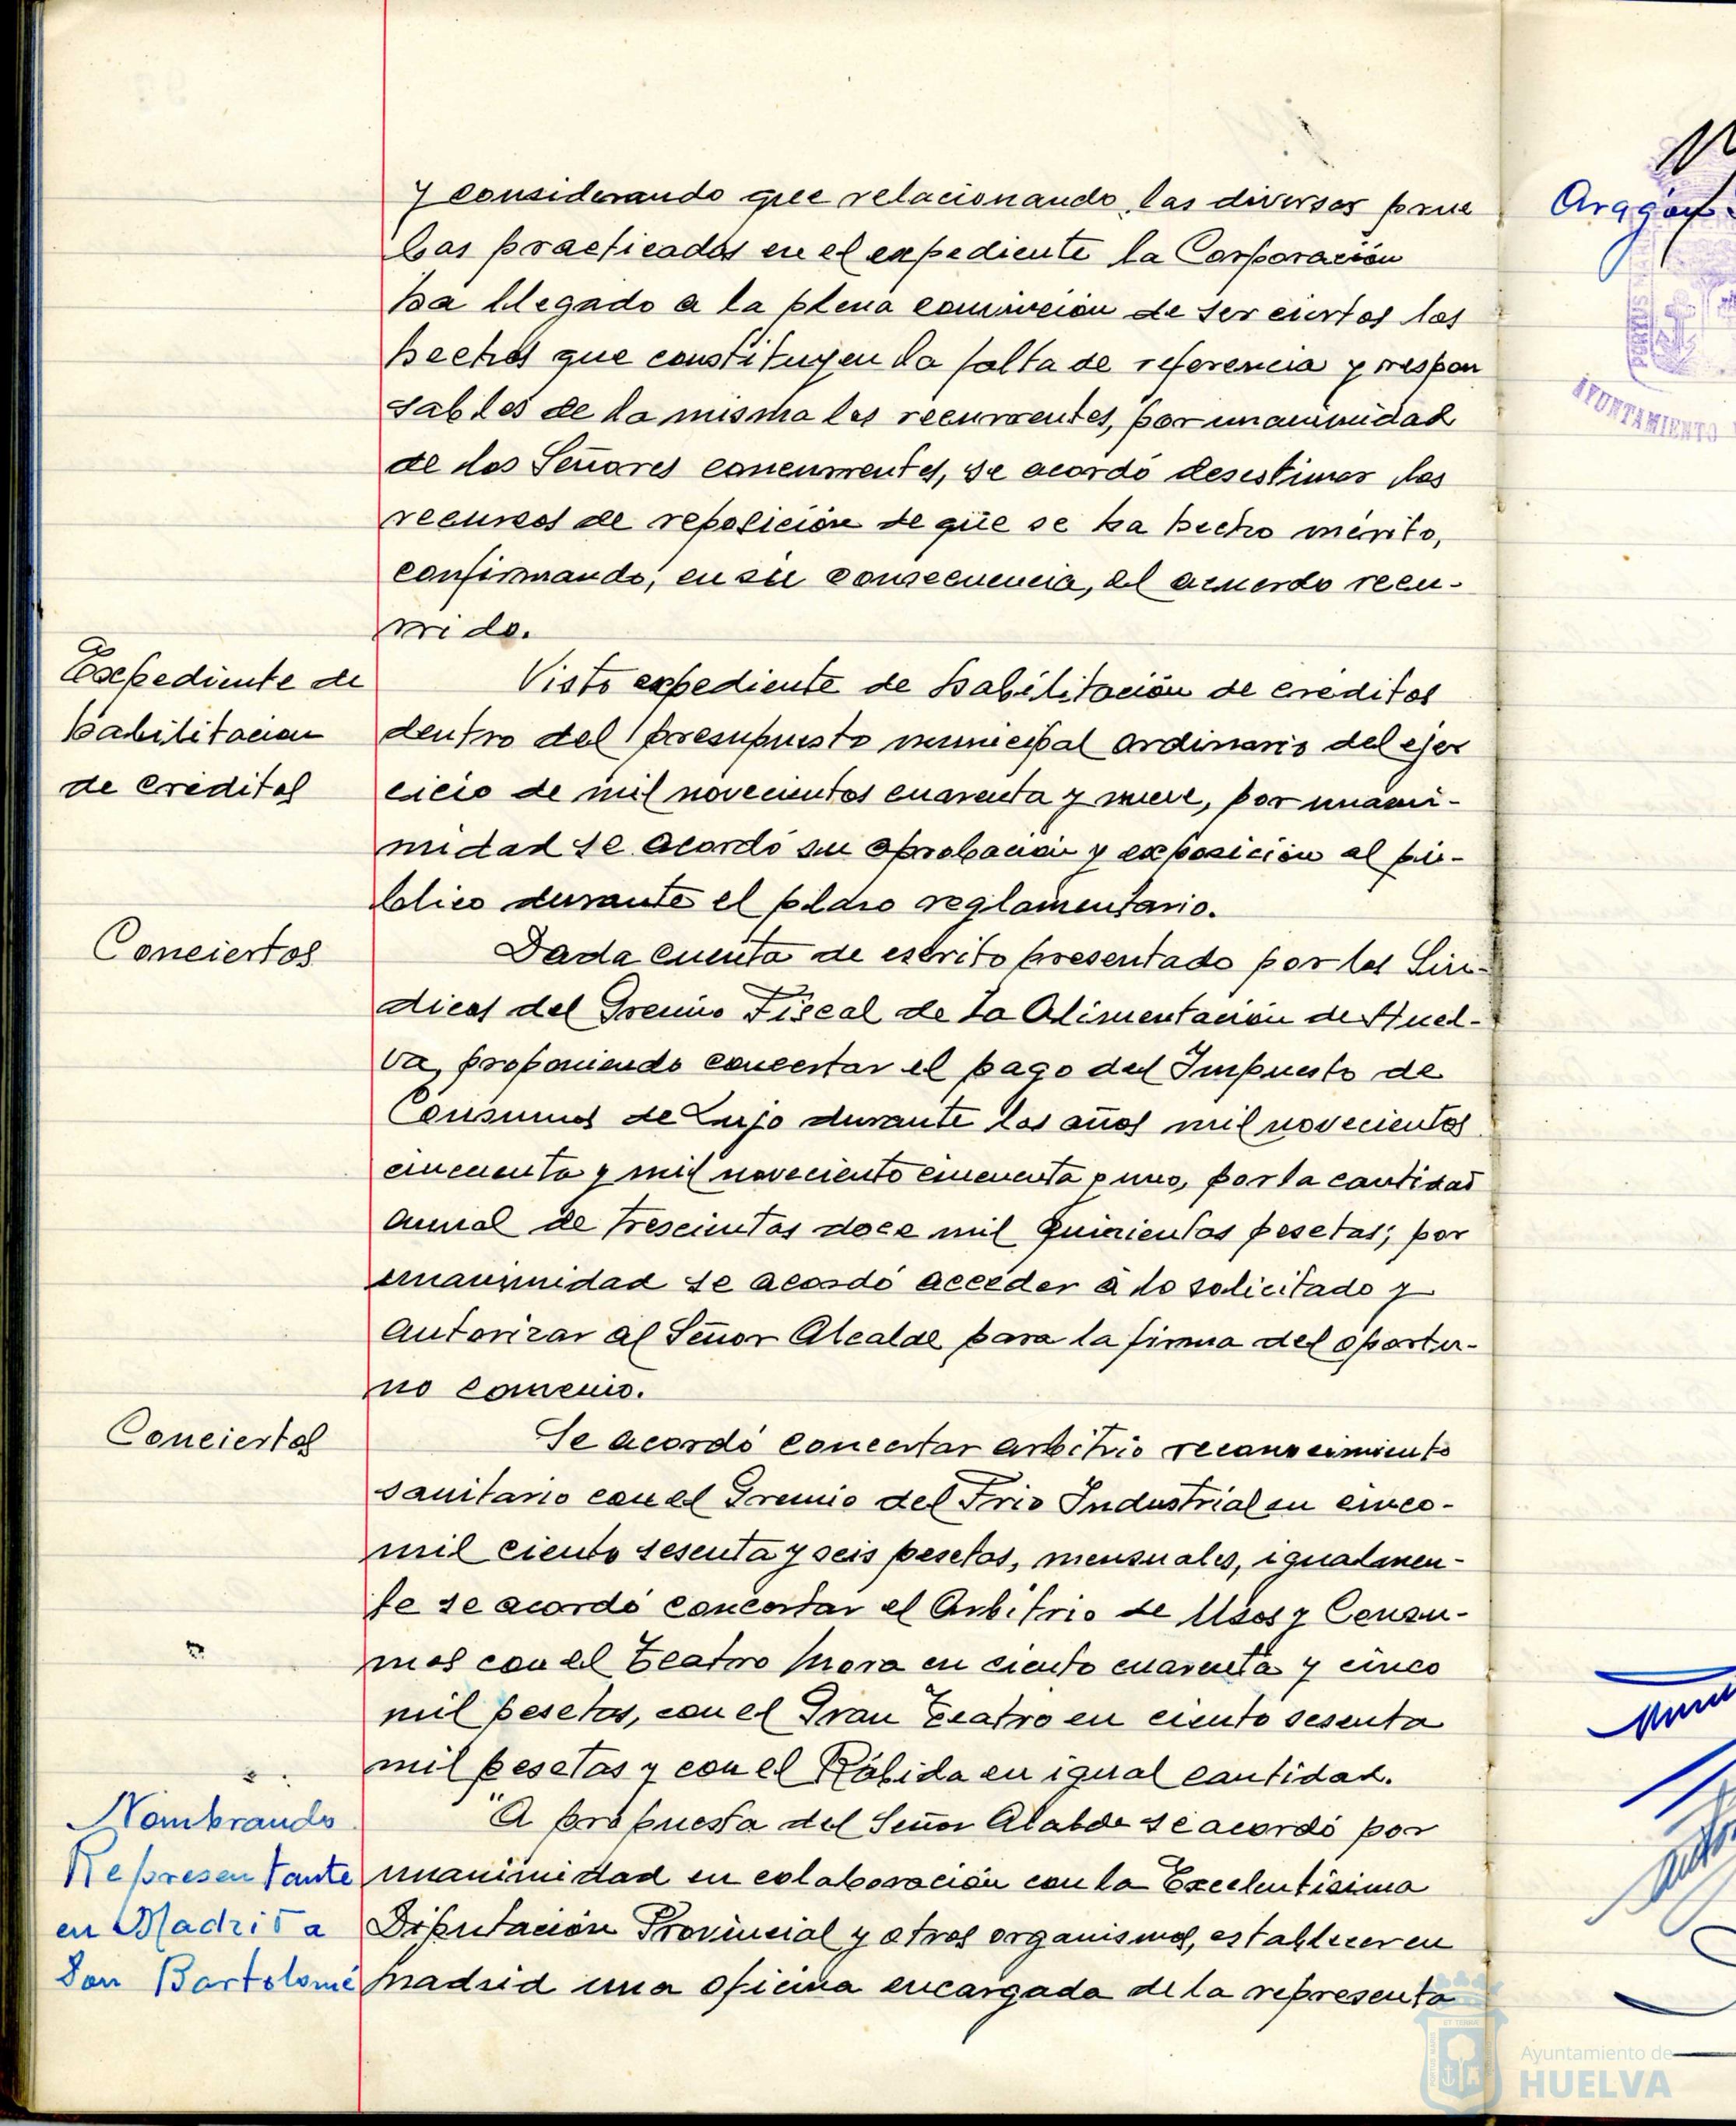 y considerando que relacionando las diversas prue
bas practicadas en el expediente la Corporación
ha llegado a la plena convicción de ser ciertos los
hechos que constituyen la falta de referencia y respon
sables de la misma los recurrentes, por unanimidad
de los Señores concurrentes, se acordó desestimar los
recursos de reposición de que se ha hecho mérito,
confirmando, en su consecuencia, el acuerdo recu-
rrido.
Expediente de
habilitacion
de creditos
Visto expediente de habilitación de creditos
dentro del presupuesto municipal ordinario del ejer
cicio de mil novecientos cuarenta y nueve, por unani-
midad se acordó su aprobación y exposición al pú-
blico durante el plazo reglamentario.
Conciertos
Dada cuenta de escrito presentado por los Sín-
dicos del Gremio Fiscal de la Alimentación de Huel-
va, proponiendo concertar el pago del Impuesto de
Consumos de Lujo durante los años mil novecientos
cincuenta y mil noveciento cincuenta y uno, por la cantidad
anual de trescientas doce mil quinientas pesetas; por
unanimidad se acordó acceder a lo solicitado y
autorizar al Señor Alcalde para la firma del oportu-
no convenio.
Conciertos
Se acordó concertar arbitrio reconocimiento
sanitario con el Gremio del Frio Industrial en cinco-
mil ciento sesenta y seis pesetas, mensuales, igualmen-
te se acordó concertar el Arbitrio de Usos y Consu-
mos con el Teatro Mora en ciento cuarenta y cinco
mil pesetas, con el Gran Teatro en ciento sesenta
mil pesetas y con el Rábida en igual cantidad.
Nombrando
Representante
en Madrid a
Don Bartolomé
A propuesta del Señor Alcalde se acordó por
unanimidad en colaboración con la Excelentísima
Diputación Provincial y otros organismos, establecer en
Madrid una oficina encargada de la representa
Aragón
AYUNTAMIENTO
Ayuntamiento de
HUELVA